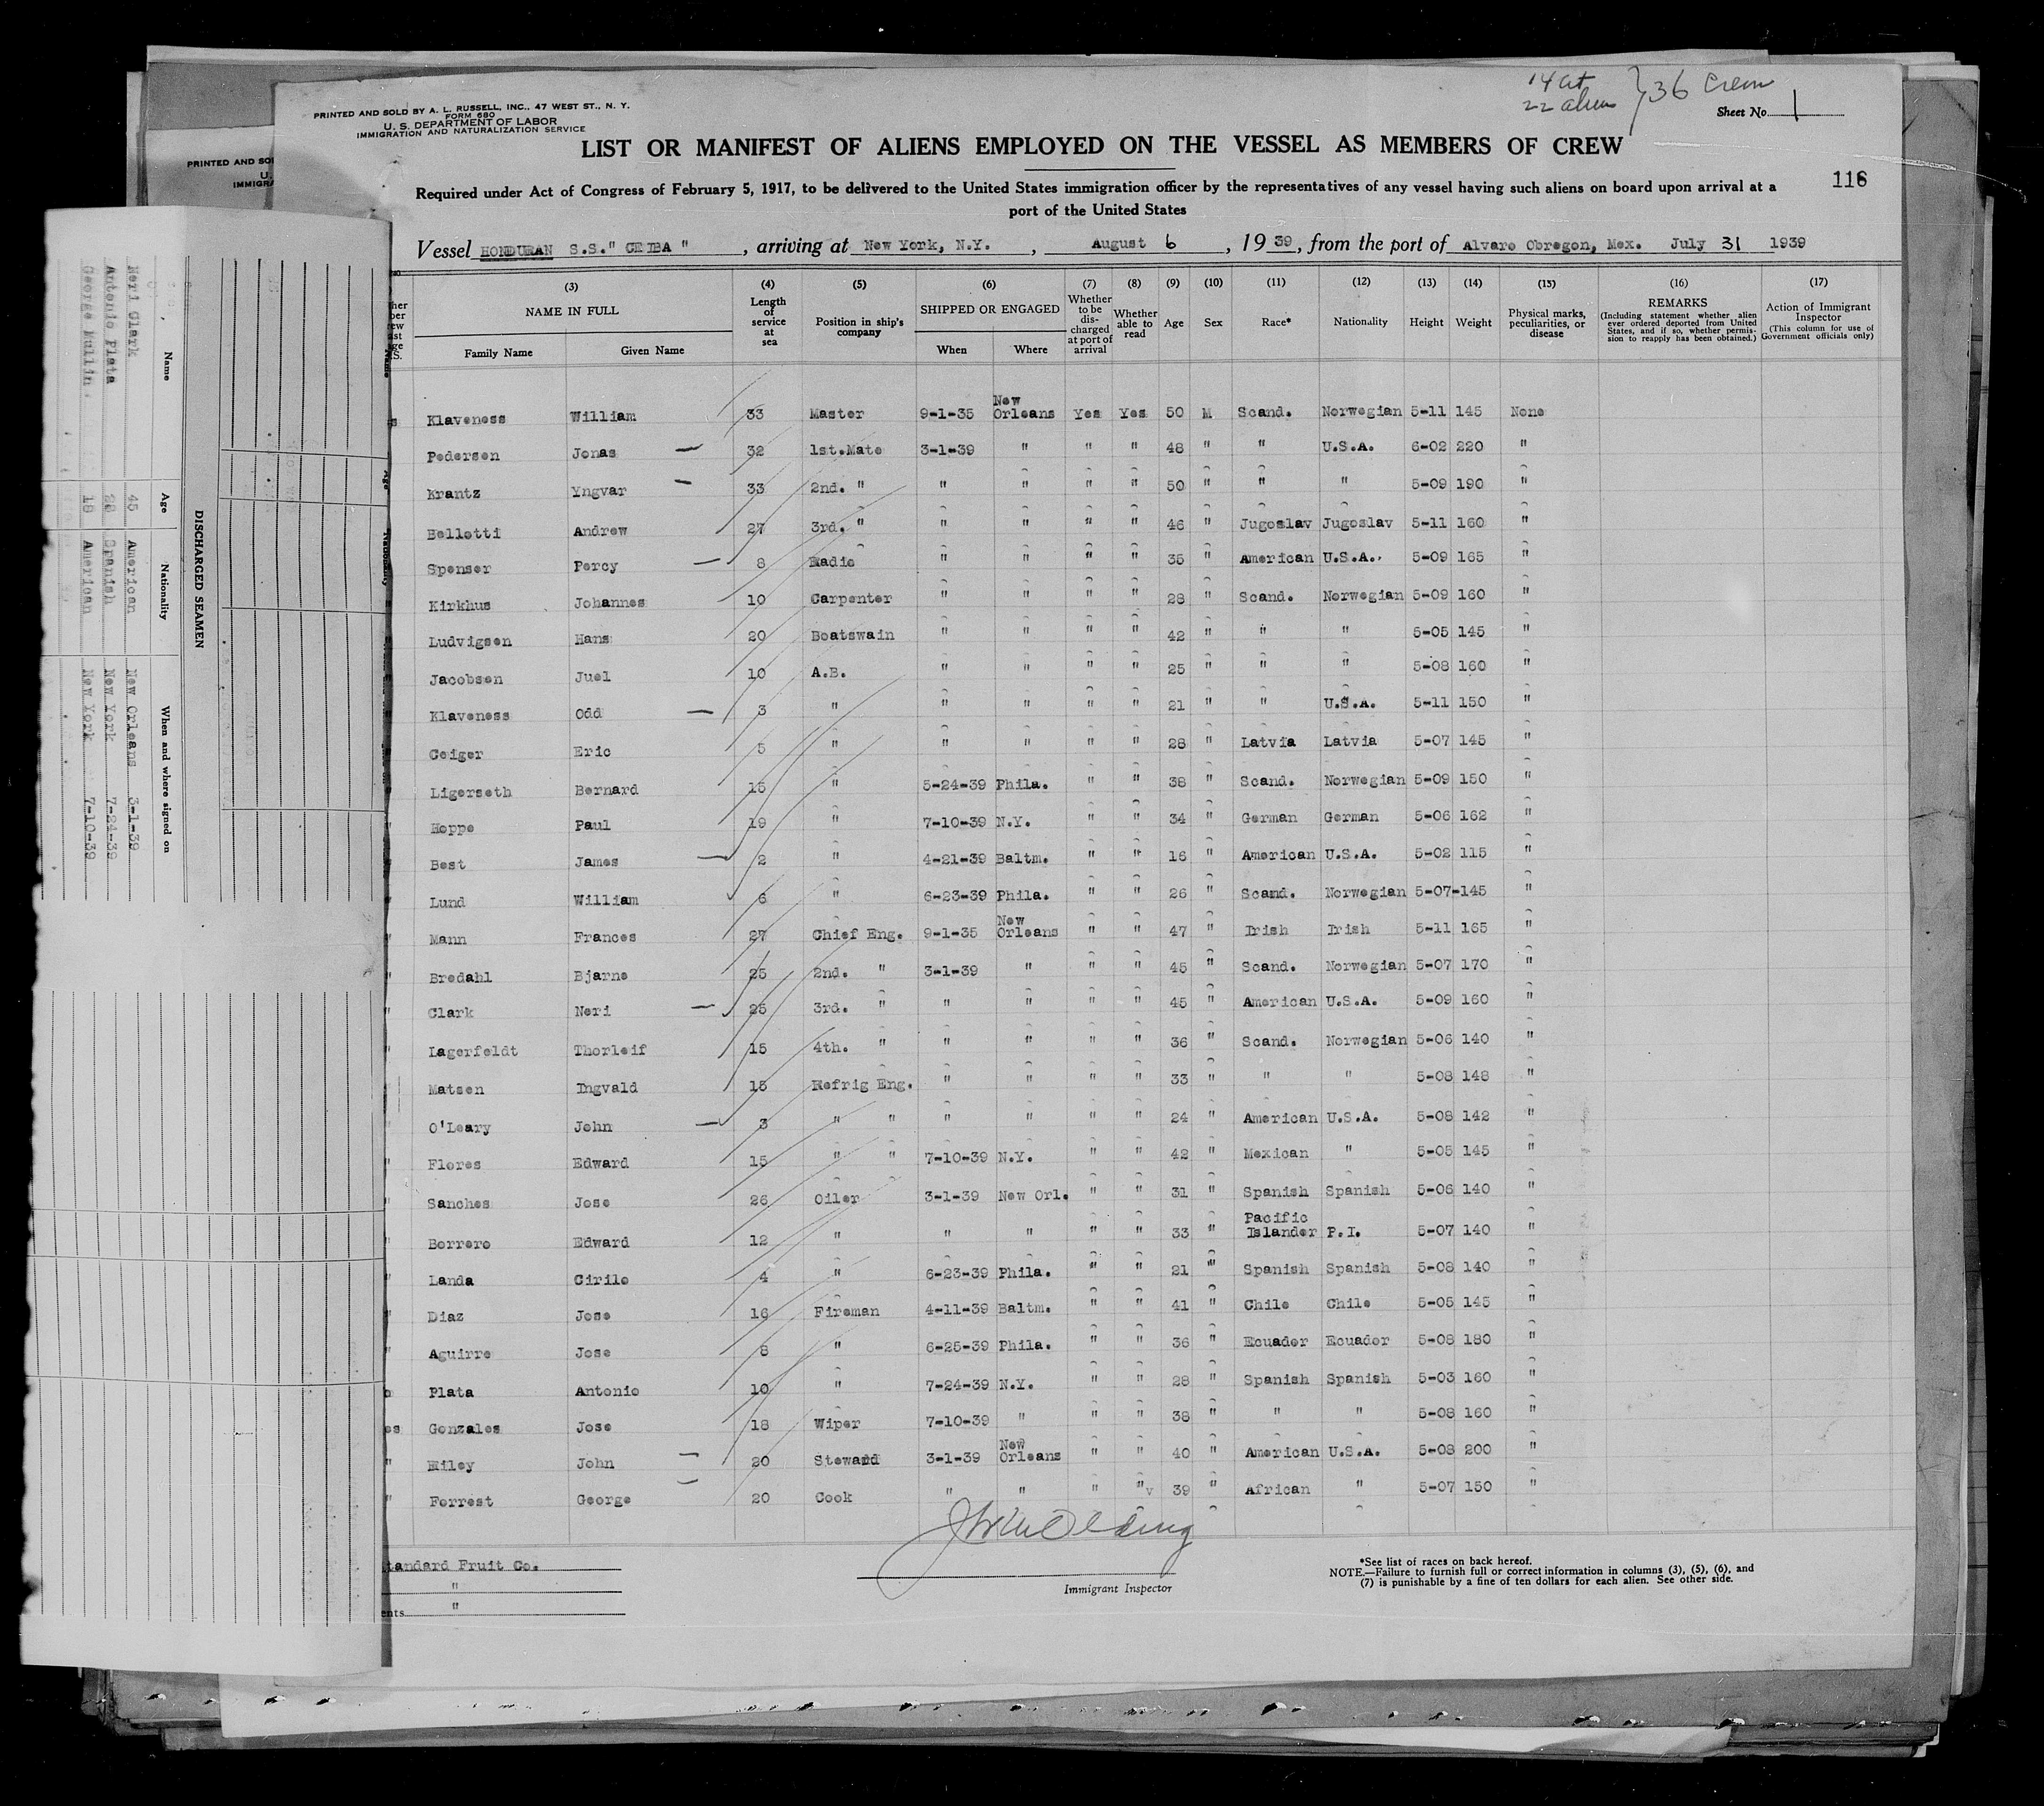 14 cit
22 alien } 36 Crew
PRINTED AND SOLD BY A. L. RUSSELL, INC., 47 WEST ST., N. Y.
FORM 680
U. S. DEPARTMENT OF LABOR
IMMIGRATION AND NATURALIZATION SERVICE
Sheet No. 1
LIST OR MANIFEST OF ALIENS EMPLOYED ON THE VESSEL AS MEMBERS OF CREW
Required under Act of Congress of February 5, 1917, to be delivered to the United States immigration officer by the representatives of any vessel having such aliens on board upon arrival at a
port of the United States
116
Vessel HONDURAN S.S." CEIBA ", arriving at New York, N.Y., August 6, 1939, from the port of Alvaro Obregon, Mex. July 31 1939
(3) (4) (5) (6) (7) (8) (9) (10) (11) (12) (13) (14) (15) (16) (17)
NAME IN FULL Length of service at sea Position in ship's company SHIPPED OR ENGAGED Whether to be discharged at port of arrival Whether able to read Age Sex Race* Nationality Height Weight Physical marks, peculiarities, or disease REMARKS (Including statement whether alien ever ordered deported from United States, and if so, whether permission to reapply has been obtained.) Action of Immigrant Inspector (This column for use of Government officials only)
Family Name Given Name When Where
Klaveness William 33 Master 9-1-35 New Orleans Yes Yes 50 M Scand. Norwegian 5-11 145 None
Pedersen Jonas 32 1st.Mate 3-1-39 " " " 48 " " U.S.A. 6-02 220 "
Krantz Yngvar 33 2nd. " " " " " 50 " " " 5-09 190 "
Bellotti Andrew 27 3rd. " " " " " 46 " Jugoslav Jugoslav 5-11 160 "
Spenser Percy 8 Radio " " " " 35 " American U.S.A. 5-09 165 "
Kirkhus Johannes 10 Carpenter " " " " 28 " Scand. Norwegian 5-09 160 "
Ludvigsen Hans 20 Boatswain " " " " 42 " " " 5-05 145 "
Jacobsen Juel 10 A.B. " " " " 25 " " " 5-08 160 "
Klaveness Odd 3 " " " " " 21 " " U.S.A. 5-11 150 "
Geiger Eric 5 " " " " " 28 " Latvia Latvia 5-07 145 "
Ligerseth Bernard 15 " 5-24-39 Phila. " " 38 " Scand. Norwegian 5-09 150 "
Hoppe Paul 19 " 7-10-39 N.Y. " " 34 " German German 5-06 162 "
Best James 2 " 4-21-39 Baltm. " " 16 " American U.S.A. 5-02 115 "
Lund William 6 " 6-23-39 Phila. " " 26 " Scand. Norwegian 5-07-145 "
Mann Frances 27 Chief Eng. 9-1-35 New Orleans " " 47 " Irish Irish 5-11 165 "
Bredahl Bjarne 25 2nd. " 3-1-39 " " " 45 " Scand. Norwegian 5-07 170 "
Clark Neri 25 3rd. " " " " " 45 " American U.S.A. 5-09 160 "
Lagerfeldt Thorleif 15 4th. " " " " " 36 " Scand. Norwegian 5-06 140 "
Matsen Ingvald 15 Refrig Eng. " " " " 33 " " " 5-08 148 "
O'Leary John 3 " " " " " " 24 " American U.S.A. 5-08 142 "
Flores Edward 15 " " 7-10-39 N.Y. " " 42 " Mexican " 5-05 145 "
Sanches Jose 26 Oiler 3-1-39 New Orl. " " 31 " Spanish Spanish 5-06 140 "
Borrero Edward 12 " " " " " 33 " Pacific Islander P.I. 5-07 140 "
Landa Cirilo 4 " 6-23-39 Phila. " " 21 " Spanish Spanish 5-08 140 "
Diaz Jose 16 Fireman 4-11-39 Baltm. " " 41 " Chile Chile 5-05 145 "
Aguirre Jose 8 " 6-25-39 Phila. " " 36 " Ecuador Ecuador 5-08 180 "
Plata Antonio 10 " 7-24-39 N.Y. " " 28 " Spanish Spanish 5-03 160 "
Gonzales Jose 18 Wiper 7-10-39 " " " 38 " " " 5-08 160 "
Riley John 20 Steward 3-1-39 New Orleans " " 40 " American U.S.A. 5-08 200 "
Forrest George 20 Cook " " " " 39 " African " 5-07 150 "
tandard Fruit Co.
"
ents "
Immigrant Inspector
*See list of races on back hereof.
NOTE.—Failure to furnish full or correct information in columns (3), (5), (6), and
(7) is punishable by a fine of ten dollars for each alien. See other side.
PRINTED AND SO
U.
IMMIGRA
DISCHARGED SEAMEN
Name Age Nationality When and where signed on
Neri Clark 45 American New Orleans 3-1-39
Antonio Plata 28 Spanish New York 7-24-39
George Mullin. 18 American New York 7-10-39